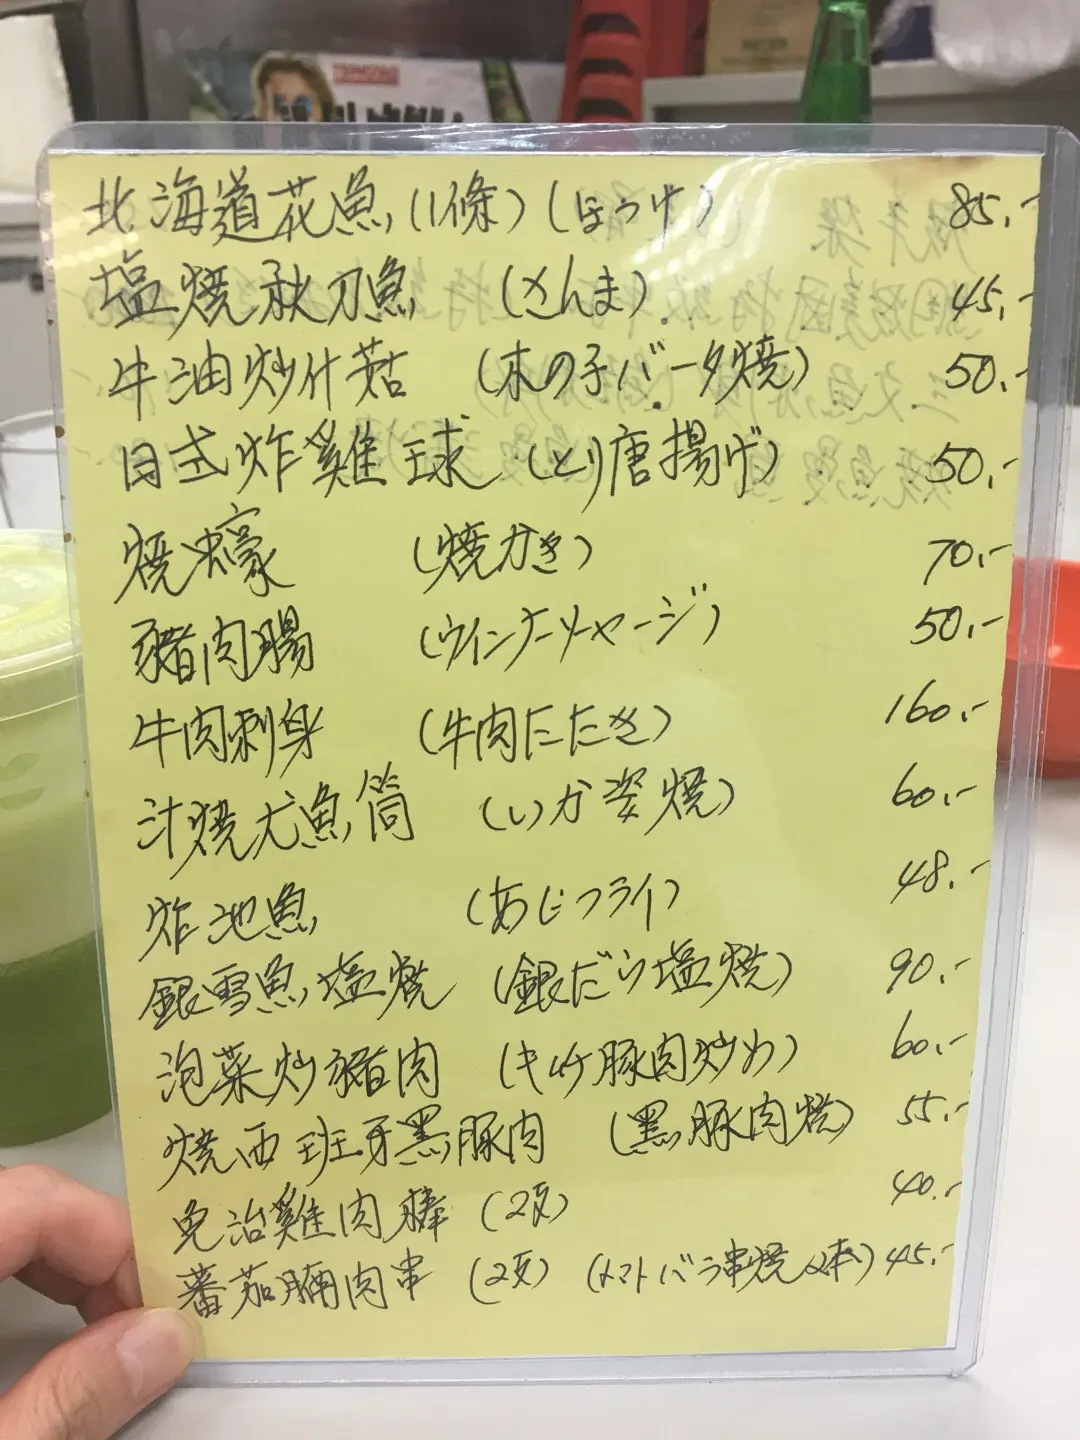 北海道花魚(1條)(ほっけ) 85.-
塩燒秋刀魚 (さんま) 45.-
牛油炒什菇 (木の子バータ焼) 50.-
日式炸雞球 (とり唐揚げ) 50.-
燒蠔 (焼かき) 70.-
豬肉腸 (ウインナーソーセージ) 50.-
牛肉刺身 (牛肉たたき) 160.-
汁燒尤魚筒 (いか姿焼) 60.-
炸池魚 (あじフライ) 48.-
銀雪魚塩燒 (銀だら塩焼) 90.-
泡菜炒豬肉 (キムチ豚肉炒め) 60.-
燒西班牙黑豚肉 (黑豚肉焼) 55.-
免治雞肉棒 (2支) 40.-
蕃茄腩肉串 (2支) (トマトバラ串焼2本) 45.-